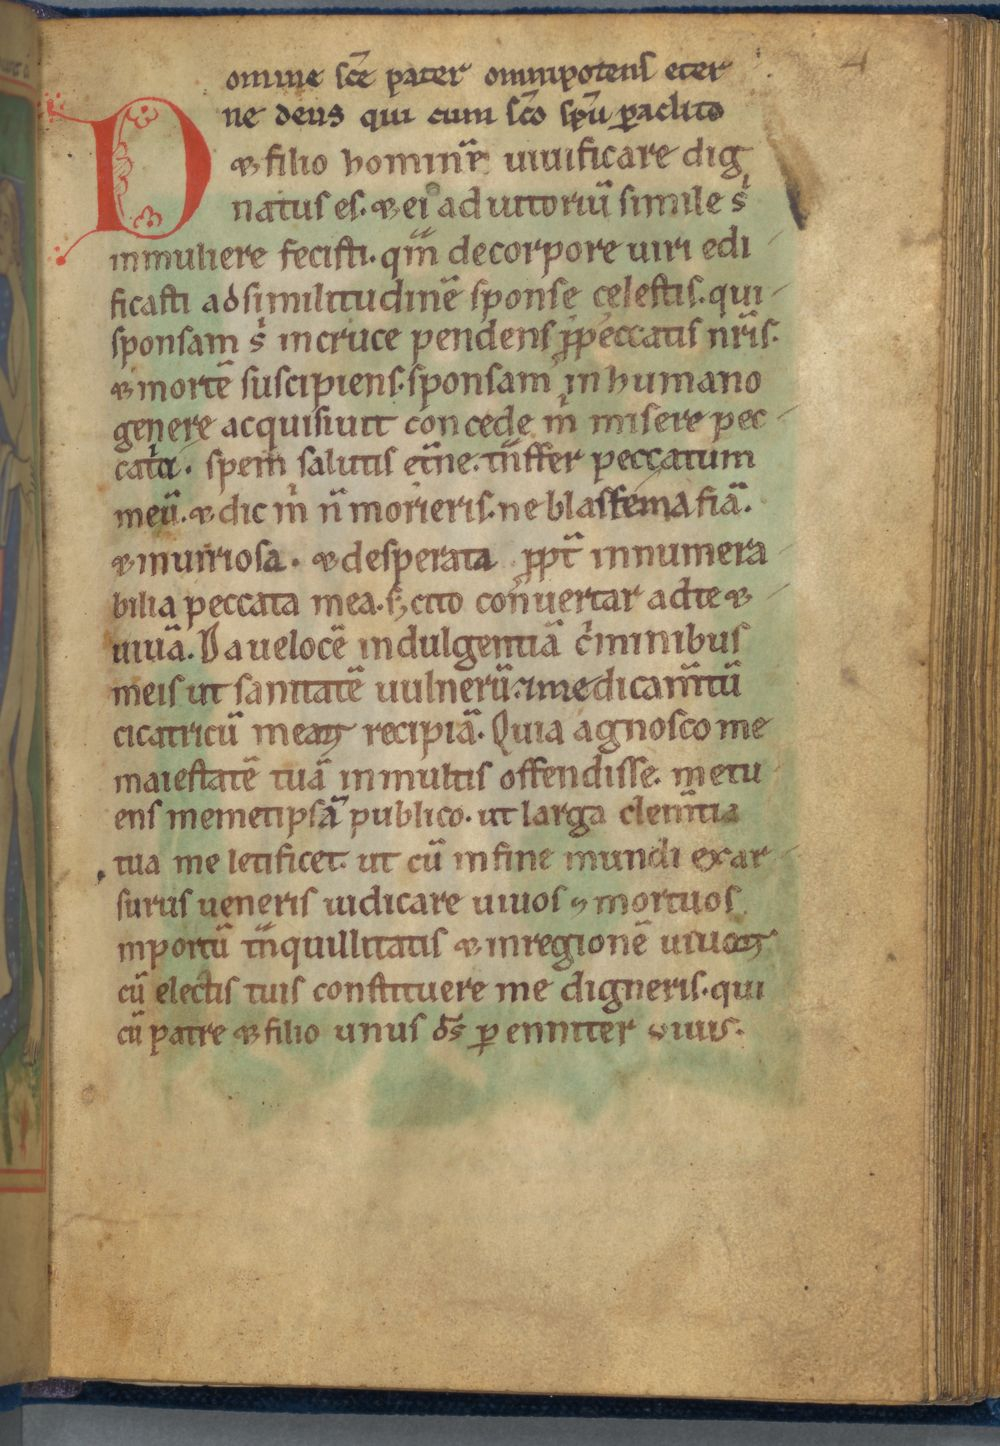 Domine sc̄e pater omnipotens eter
ne deus qui cum sc̄o sp̄u paclito
& filio hominē uiuificare dig
natus es. & ei adiutoriū simile s'
in muliere fecisti. qm̄ de corpore uiri edi
ficasti ad similitudinē sponse celestis. qui
sponsam s' in cruce pendens p̱peccatis nr̄is.
& mortē suscipiens. sponsam in humano
genere acquisiuit concede m' misere pec
cat'ci. spem salutis et̄ne. t̄nsfer peccatum
meū. & dic m' n̄ morieris. ne blasfema fiā.
& iniuriosa. & desperata ppt̄ innumera
bilia peccata mea. s; cito conuertar ad te &
uiuā. Da uelocē indulgentiā c'minibus
meis ut sanitatē uulnerū. & medicam̄tū
cicatricū meaꝝ recipiā. Quia agnosco me
maiestatē tuā in multis offendisse. metu
ens memetipsā publico. ut larga clem̄tia
tua me letificet. ut cū in fine mundi exar
surus ueneris iudicare uiuos ⁊ mortuos
in portū t̄nquillitatis & in regionē uiuoꝝ
cū electis tuis constituere me digneris. qui
cū patre & filio unus ds̄ ꝑenniter uiuis.